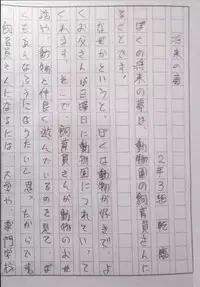 将来の夢
2年3組
ぼくの将来の夢は、動物園の飼育員さんに
なることです。
なぜかというと、ぼくは動物が好きで、よ
くお父さんが日曜日に動物園につれていって
くれます。そこで、飼育員さんが動物のお世
話や動物と仲良く遊んでいるのを見て、ぼ
くもあんなふうになりたいと思ったからです。
飼育員さんになるには、大学や専門学校